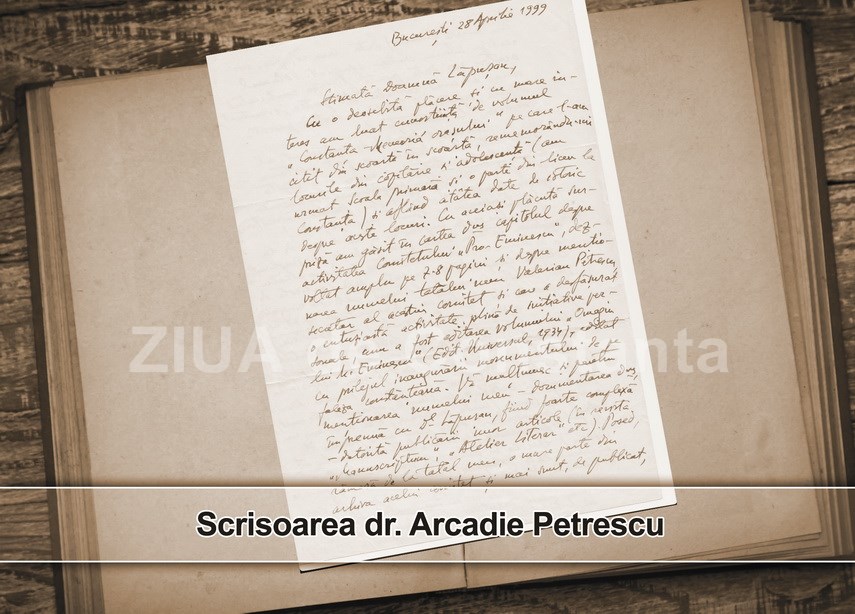 București 28 Aprilie 1999
Stimată Doamnă Lăpușan,
Cu o deosebită plăcere și cu mare in-
teres am luat cunoștiință de volumul
"Constanța – Memoria orașului" pe care l-am
citit din scoarță în scoarță, rememorându-mi
locurile din copilărie și adolescență (am
urmat școala primară și o parte din liceu la
Constanța) și aflând atâtea date de istoric
despre aceste locuri. Cu aceiași plăcută sur-
priză am găsit în cartea dvs capitolul despre
activitatea Comitetului "Pro-Eminescu", dez-
voltat amplu pe 7-8 pagini și despre mentio-
narea numelui tatălui meu Valerian Petrescu
secretar al acestui comitet și care a desfășurat
o entuziastă activitate plină de inițiative per-
sonale cum a fost editarea volumului "Omagiu
lui M. Eminescu" (Edit. Universul, 1934), editat
cu prilejul inaugurării monumentului de pe
faleza constănțeană. Vă mulțumesc și pentru
menționarea numelui meu – documentarea dvs,
împreună cu Dl Lăpușan, fiind foarte complexă
– datorită publicării unor articole (în revista
"Manuscriptum", "Atelier Literar" etc). Posed,
de la tatăl meu, o mare parte din
arhiva acelui comitet și mai sunt, de publicat,
ZIUA Constanta
Scrisoarea dr. Arcadie Petrescu